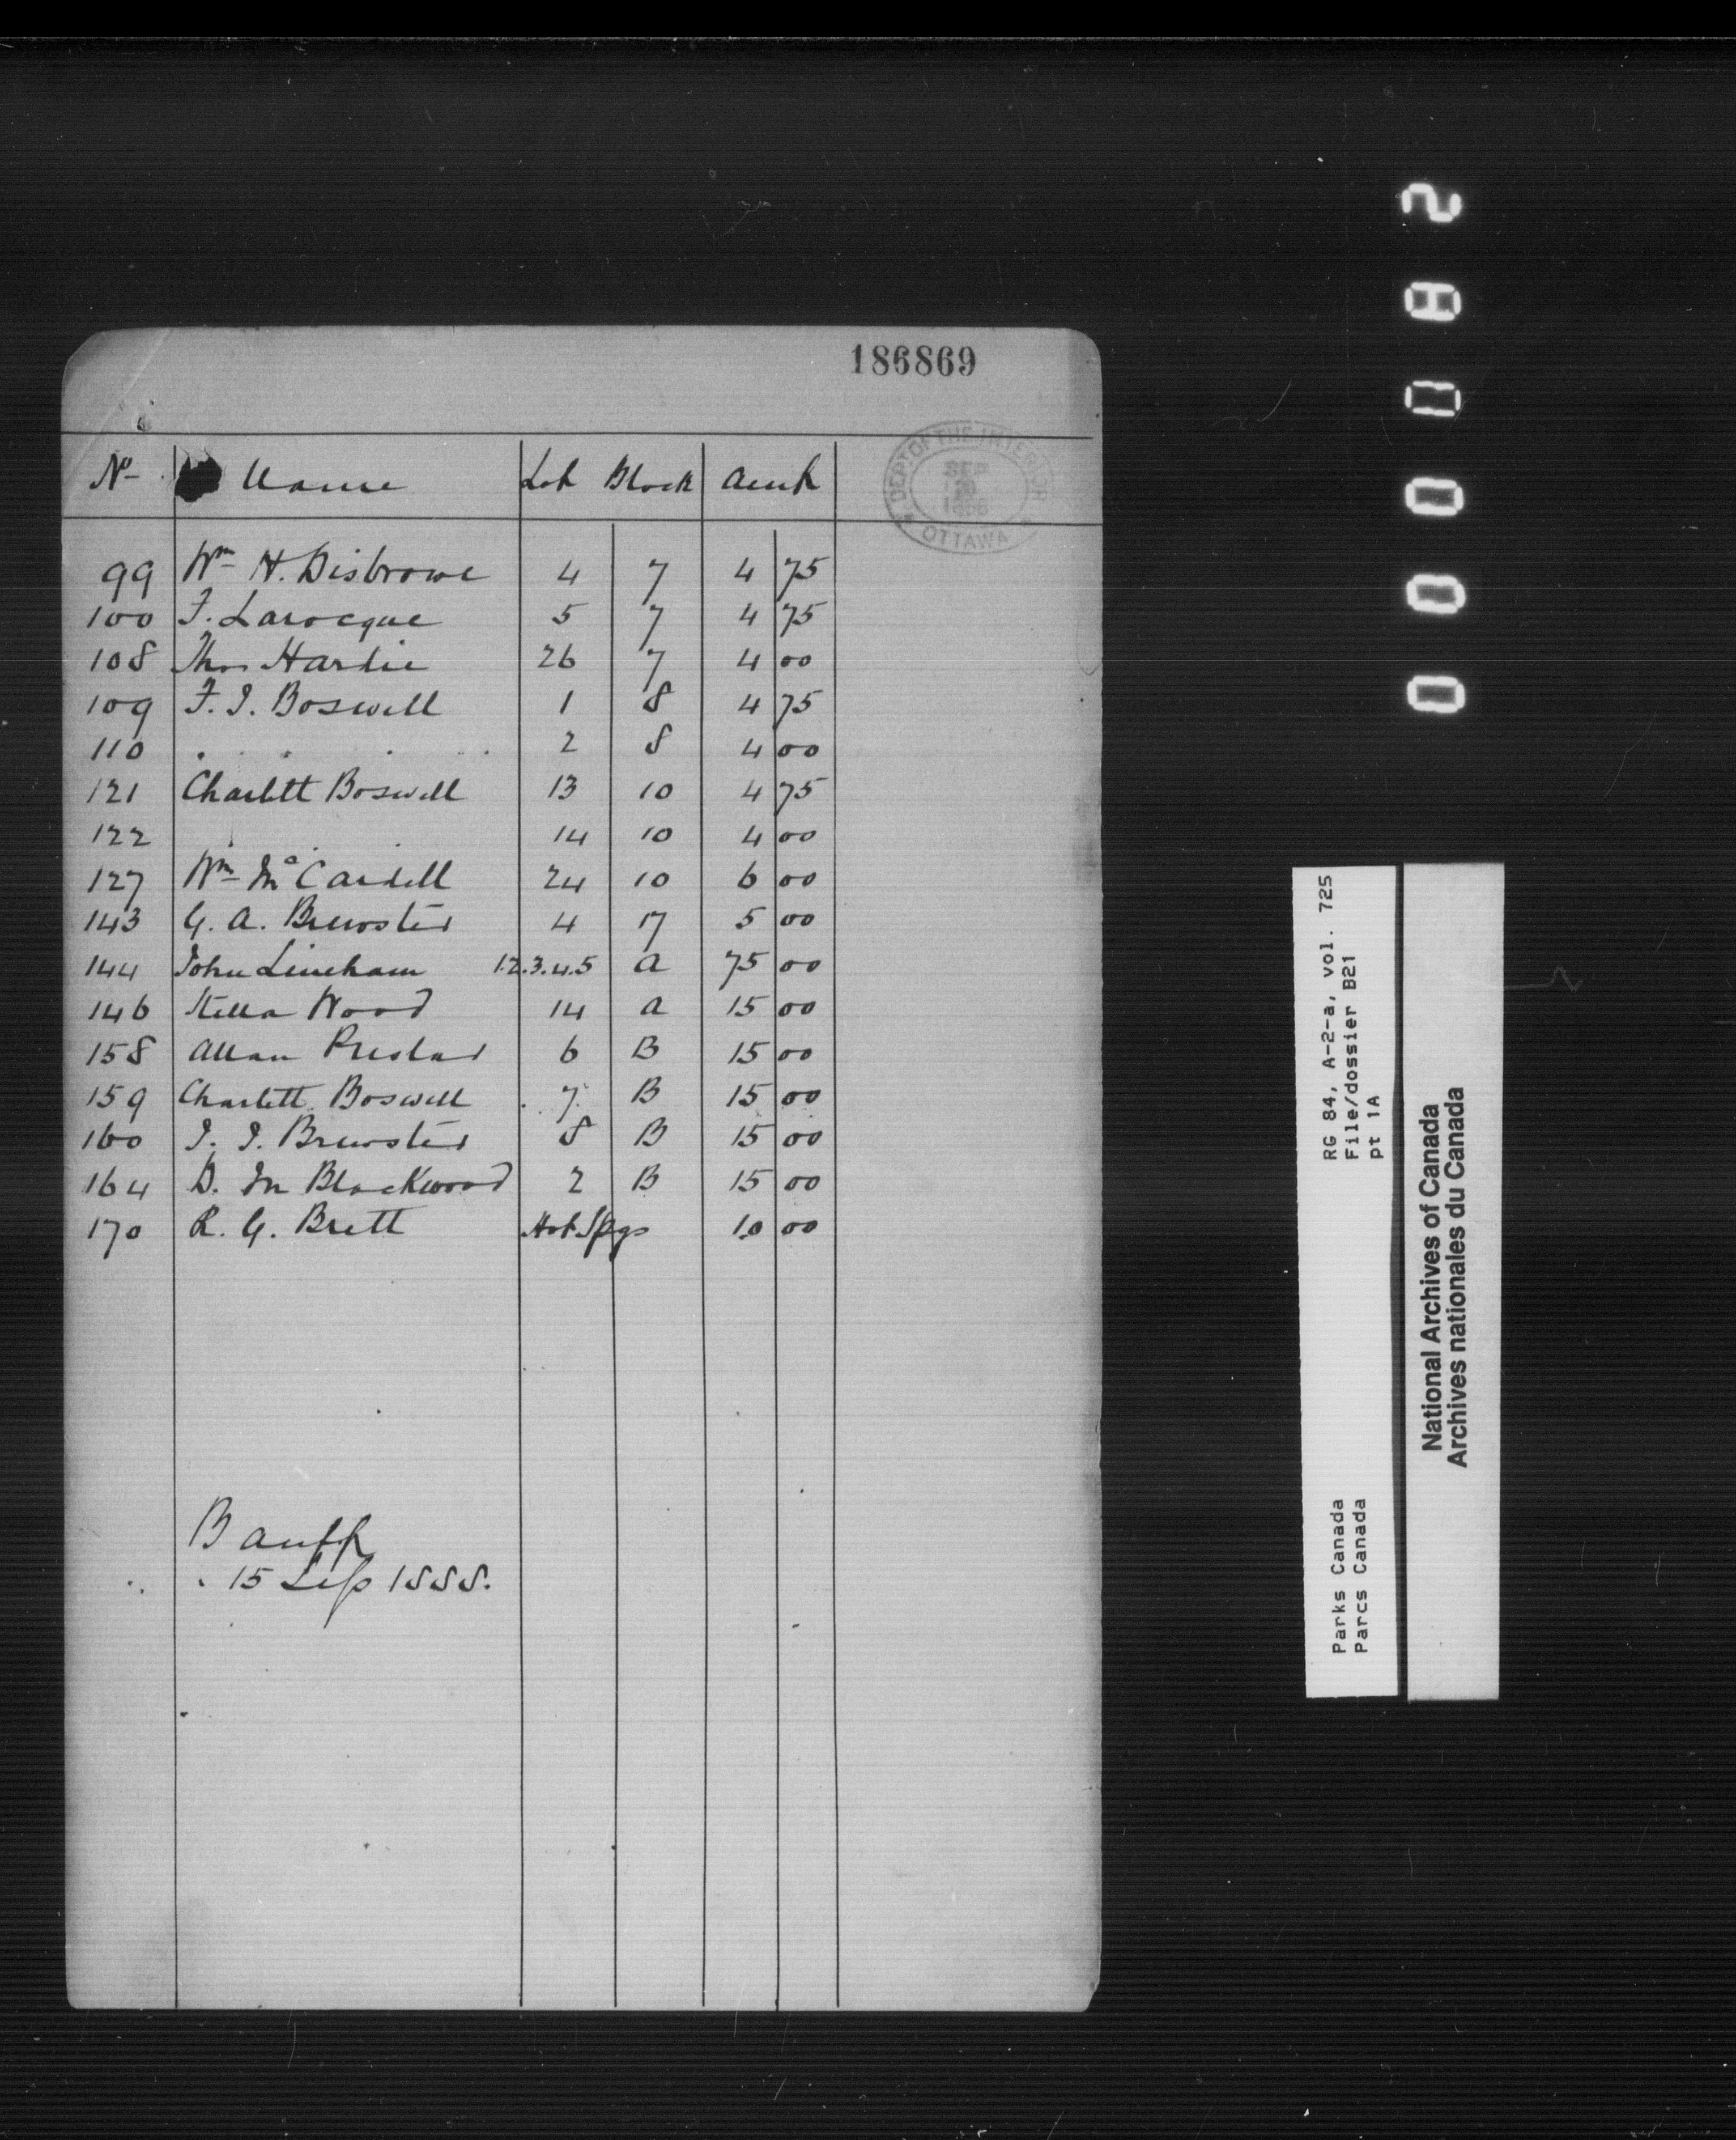 186869
DEPT. OF THE INTERIOR
SEP
1888
OTTAWA
No Name Lot Block Amt
99 Wm H. Disbrowe 4 7 4 75
100 F. Larocque 5 7 4 75
108 Thos Hardie 26 7 4 00
109 F. J. Boswell 1 8 4 75
110 . . . . . 2 8 4 00
121 Charlett Boswell 13 10 4 75
122 . . . 14 10 4 00
127 Wm McCardell 24 10 6 00
143 G. A. Brewster 4 17 5 00
144 John Lineham 1.2.3.4.5 a 75 00
146 Stella Wood 14 a 15 00
158 Allan 6 B 15 00
159 Charlett Boswell 7 B 15 00
160 J. J. Brewster 8 B 15 00
164 D. M Blackwood 2 B 15 00
170 R. G. Brett Hot Spgs 10 00
Banff
15 Sep 1888.
0000H2
Parks Canada RG 84, A-2-a, vol. 725
Parcs Canada File/dossier B21
pt 1A
National Archives of Canada
Archives nationales du Canada